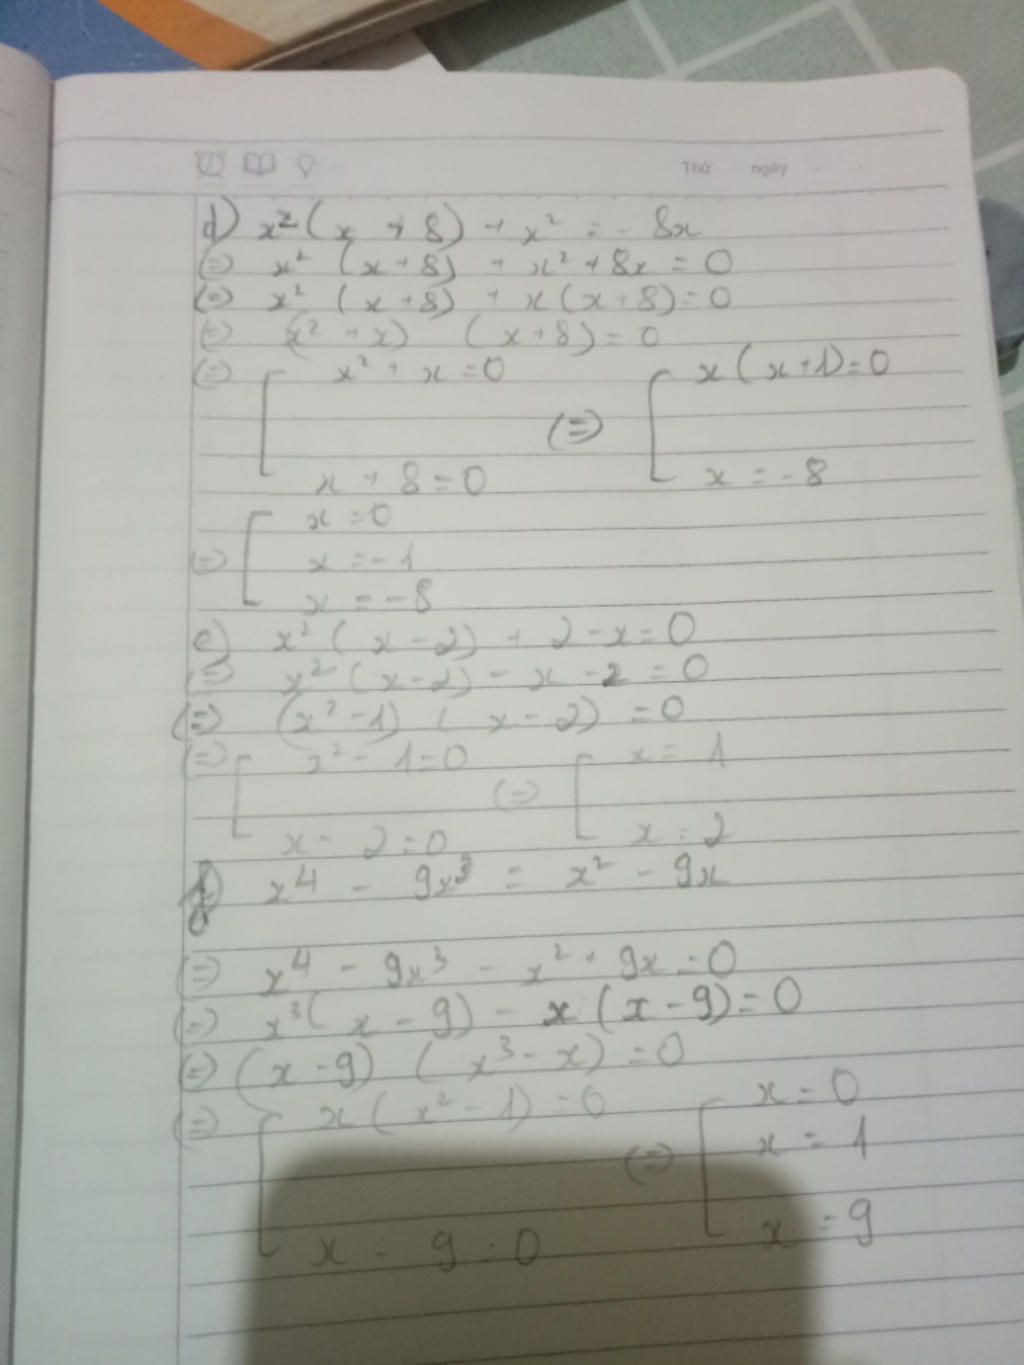 Thứ ngày
d) x² (x + 8) + x² = - 8x
(=) x² (x + 8) + x² + 8x = 0
(=) x² (x + 8) + x (x + 8) = 0
(=) (x² + x) (x + 8) = 0
(=) [ x² + x = 0 (=) [ x (x + 1) = 0
x + 8 = 0 x = - 8
(=) [ x = 0
x = - 1
x = - 8
e) x² (x - 2) + 2 - x = 0
(=) x² (x - 2) - x - 2 = 0
(=) (x² - 1) (x - 2) = 0
(=) [ x² - 1 = 0 (=) [ x = 1
x - 2 = 0 x = 2
x⁴ - 9x³ = x² - 9x
(=) x⁴ - 9x³ - x² + 9x = 0
(=) x³ (x - 9) - x (x - 9) = 0
(=) (x - 9) (x³ - x) = 0
(=) [ x (x² - 1) = 0 (=) [ x = 0
x = 1
x - 9 = 0 x = 9